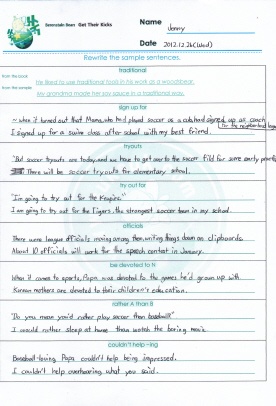 Berenstain Bears Get Their Kicks
Name Jenny
Date 2012.12.26(Wed)
Rewrite the sample sentences.
traditional
from the book He liked to use traditional tools in his work as a woodbear.
from the sample My grandma made her soy sauce in a traditional way.
sign up for
~ when it turned out that Mama, who had played soccer as a cub, had signed up as coach
for the neighborhood league
I signed up for a swim class after school with my best friend.
tryouts
"But soccer tryouts are today, and we have to get over to the soccer field for some early practice
There will be soccer tryouts for elementary school.
try out for
"I'm going to try out for the Knights."
I am going to try out for the Tigers, the strongest soccer team in my school.
officials
There were league officials moving among them, writing things down on clipboards.
About 10 officials will work for the speech contest in January.
be devoted to N
When it comes to sports, Papa was devoted to the games he'd grown up with
Korean mothers are devoted to their children's education.
rather A than B
"Do you mean you'd rather play soccer than baseball?"
I would rather sleep at home than watch the boring movie.
couldn't help -ing
Baseball-loving Papa couldn't help being impressed.
I couldn't help overhearing what you said.